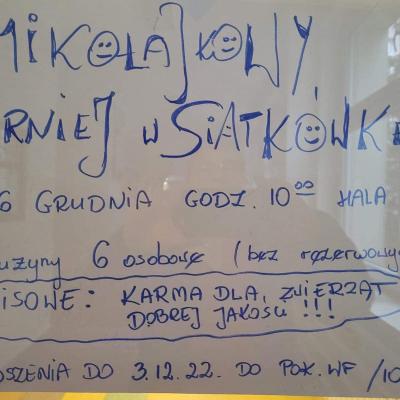 MIKOŁAJKOWY
RNIEJ W SIATKÓWK
6 GRUDNIA GODZ. 10⁰⁰ HALA
użyny 6 osobowe (bez rezerwowy
ISOWE: KARMA DLA ZWIERZĄT
DOBREJ JAKOŚCI !!!
OSZENIA DO 3.12.22. DO POK. WF /10